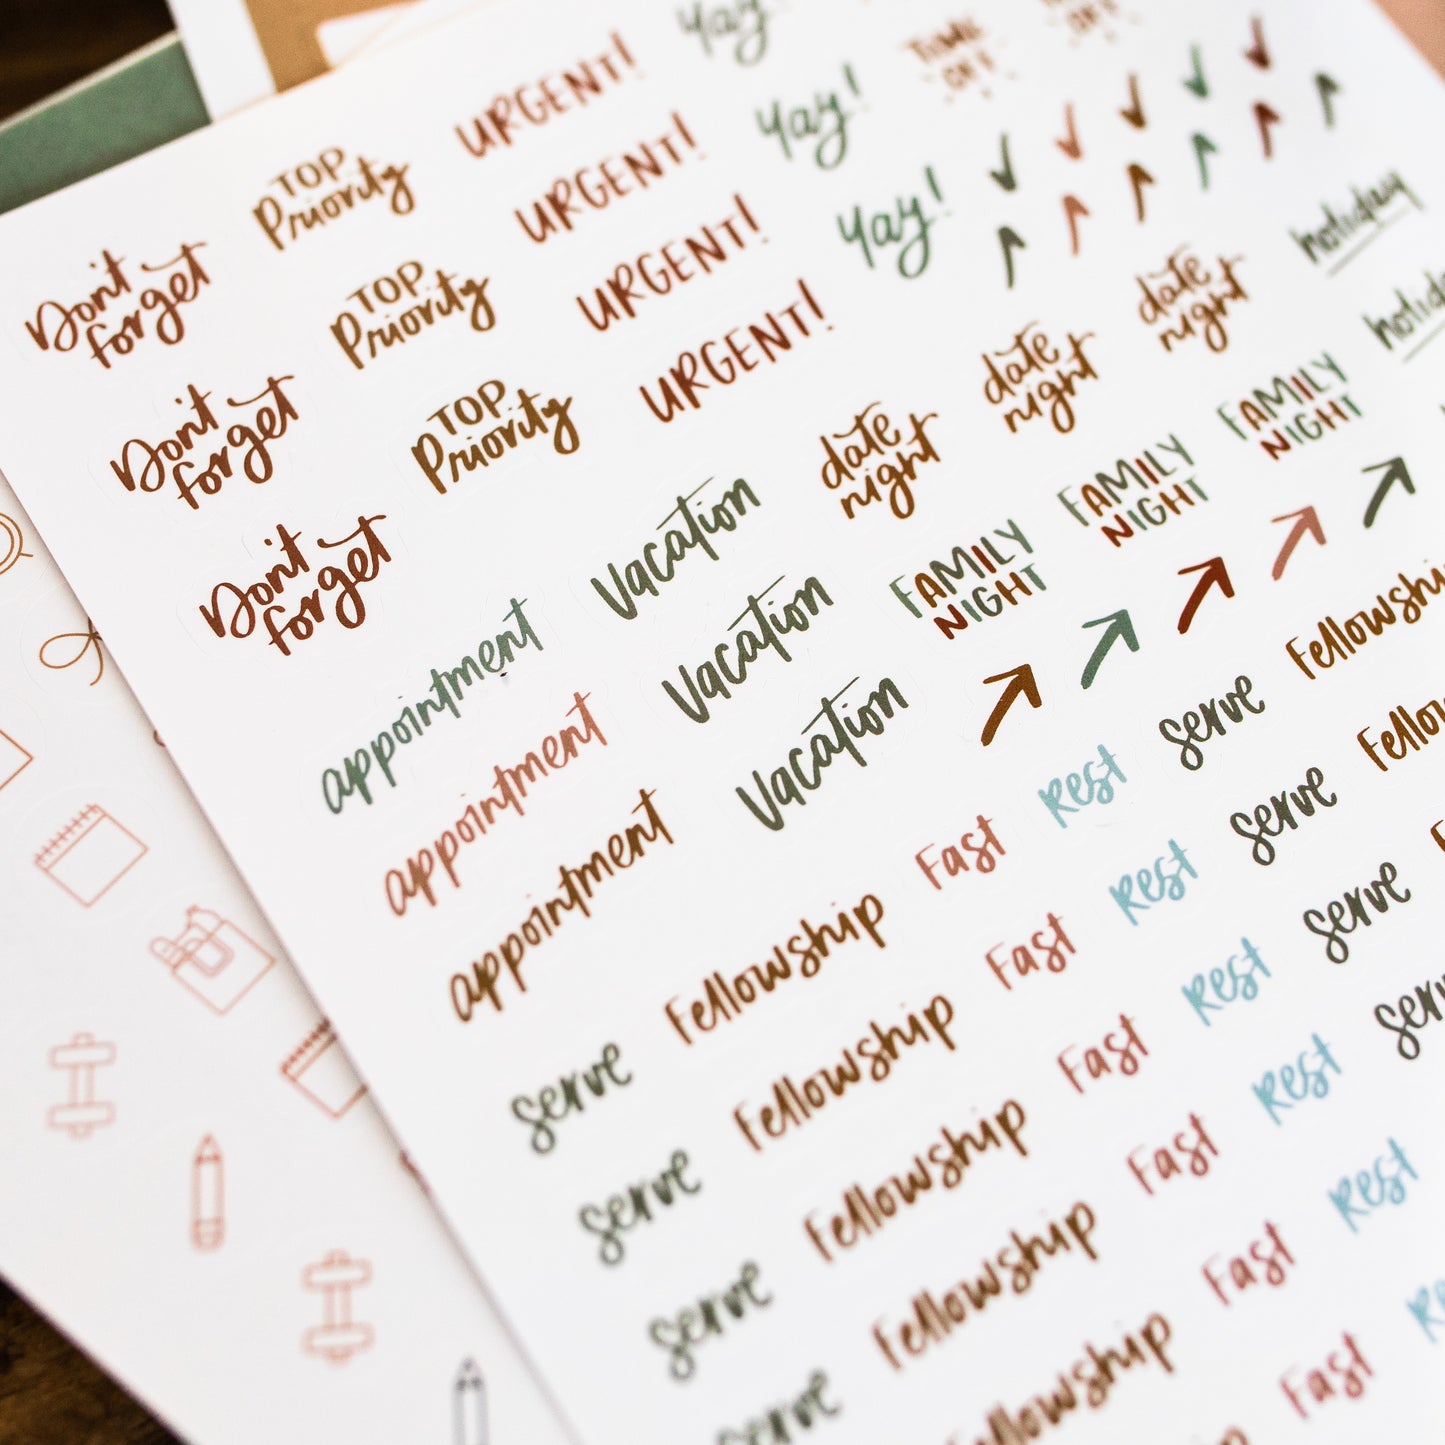 Yay!
TIME
OFF
OFF
URGENT!
Yay!
TOP
Priority
URGENT!
Yay!
Don't
forget
TOP
Priority
URGENT!
date
night
holiday
Don't
forget
TOP
Priority
URGENT!
date
night
holiday
Don't
forget
vacation
date
night
FAMILY
NIGHT
appointment
vacation
FAMILY
NIGHT
appointment
vacation
FAMILY
NIGHT
appointment
Fellowship
Fast
Rest
serve
Fellowship
serve
Fellowship
Fast
Rest
serve
serve
Fellowship
Fast
Rest
serve
serve
Fellowship
Fast
Rest
serve
Fellowship
Fast
Rest
Fast